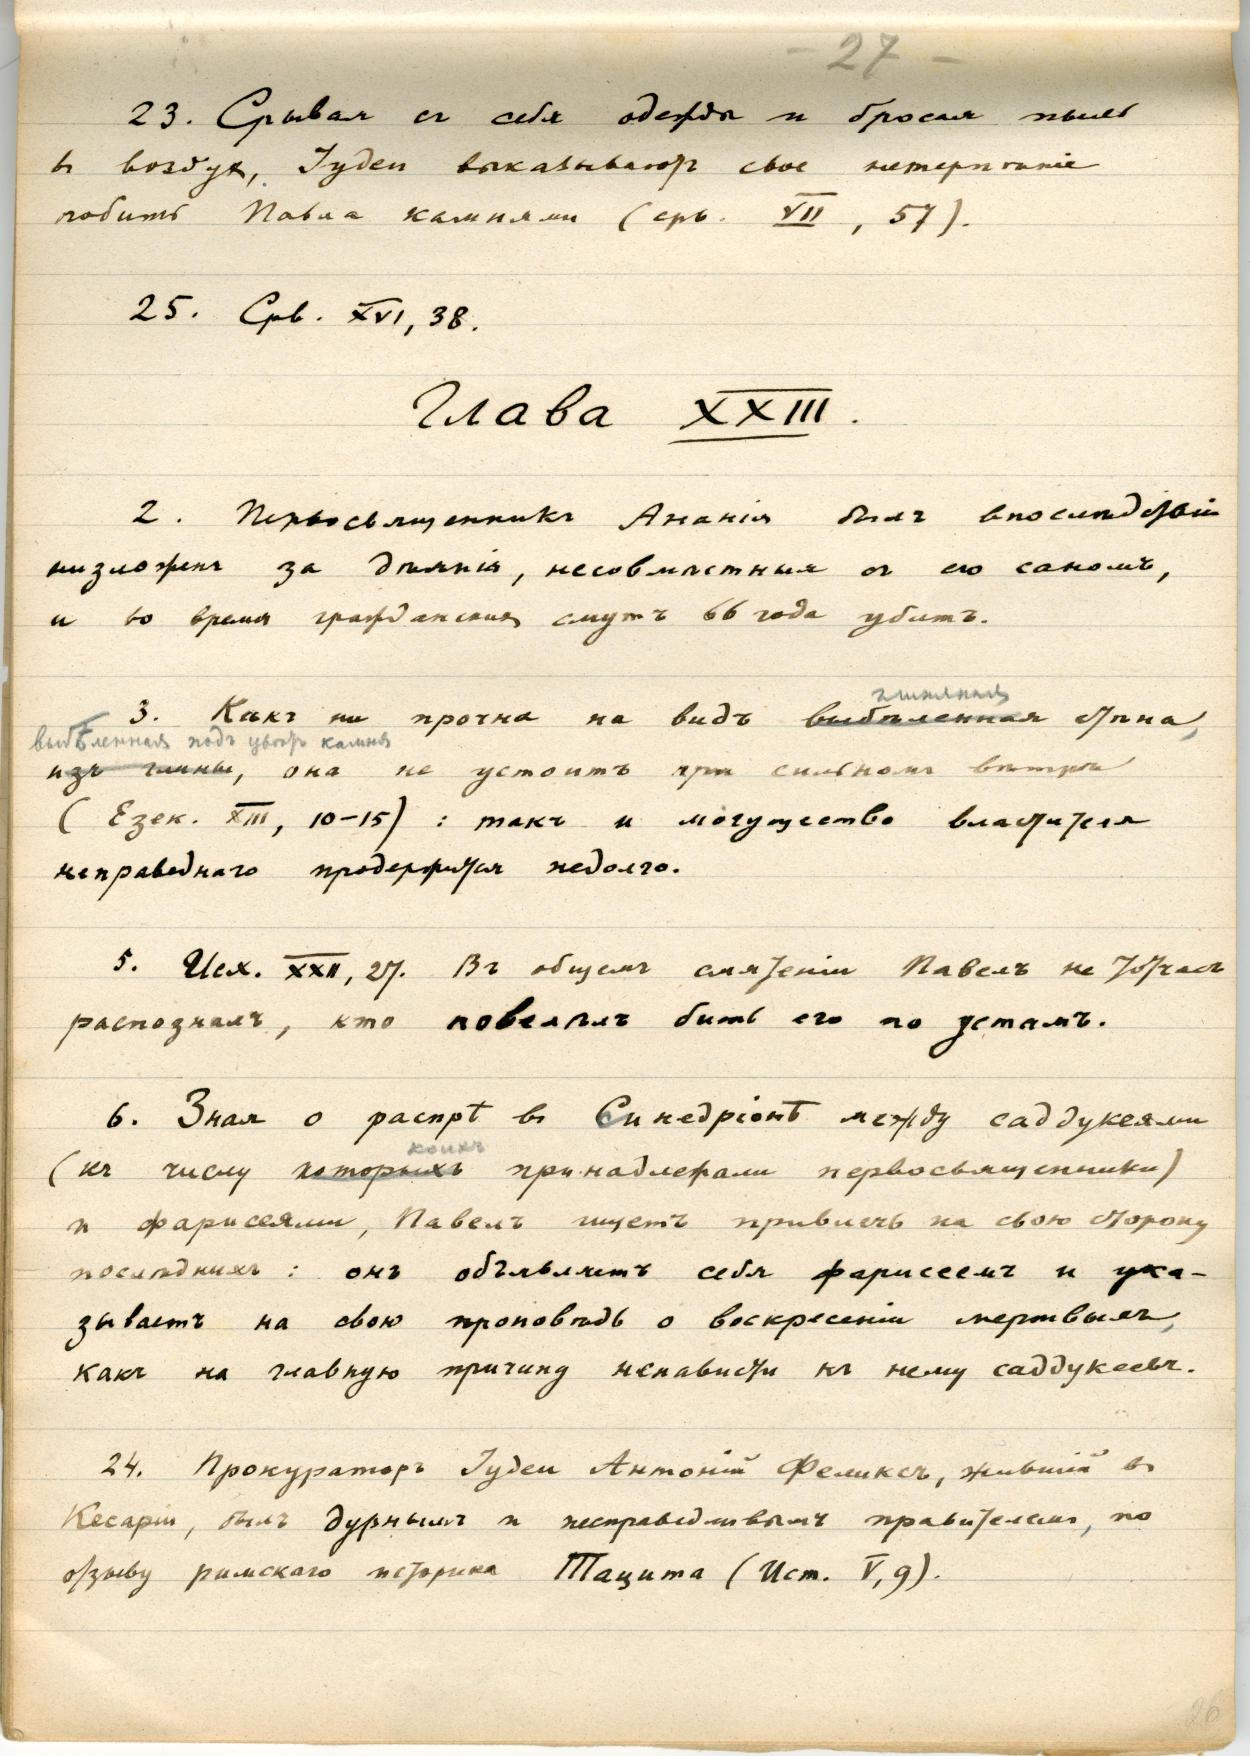 - 27 -
23. Срывая съ себя одежды и бросая пыль
въ воздухъ, Іудеи выказываютъ свое нетерпѣніе
побить Павла камнями (срв. VII, 57).
25. Срв. XVI, 38.
Глава XXIII.
2. Первосвященникъ Ананія былъ впослѣдствіи
низложенъ за дѣянія, несовмѣстныя съ его саномъ,
и во время гражданскихъ смутъ 66 года убитъ.
глиняная
3. Какъ ни прочна на видъ выбѣленная стѣна,
выбѣленная подъ цвѣтъ камня
изъ глины, она не устоитъ при сильномъ вѣтрѣ
(Езек. XIII, 10-15): такъ и могущество властителя
неправеднаго продержится недолго.
5. Исх. XXII, 27. Въ общемъ смятеніи Павелъ не тотчасъ
распозналъ, кто повелѣлъ бить его по устамъ.
6. Зная о распрѣ въ Синедріонѣ между саддукеями
коихъ
(къ числу которыхъ принадлежали первосвященники)
и фарисеями, Павелъ ищетъ привлечь на свою сторону
послѣднихъ: онъ объявляетъ себя фарисеемъ и ука-
зываетъ на свою проповѣдь о воскресеніи мертвыхъ,
какъ на главную причину ненависти къ нему саддукеевъ.
24. Прокураторъ Іудеи Антоній Феликсъ, жившій въ
Кесаріи, былъ дурнымъ и несправедливымъ правителемъ, по
отзыву римскаго историка Тацита (Ист. V, 9).
26